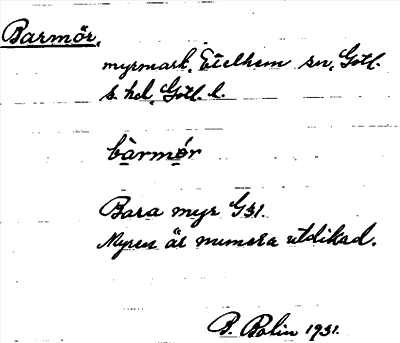 Barmör.
myrmark, Etelhem sn, Gotl.
s. hd, Gotl. l.
bàrmǿr
Bara myr G31.
Myren är numera utdikad.
B. Bolin 1931.